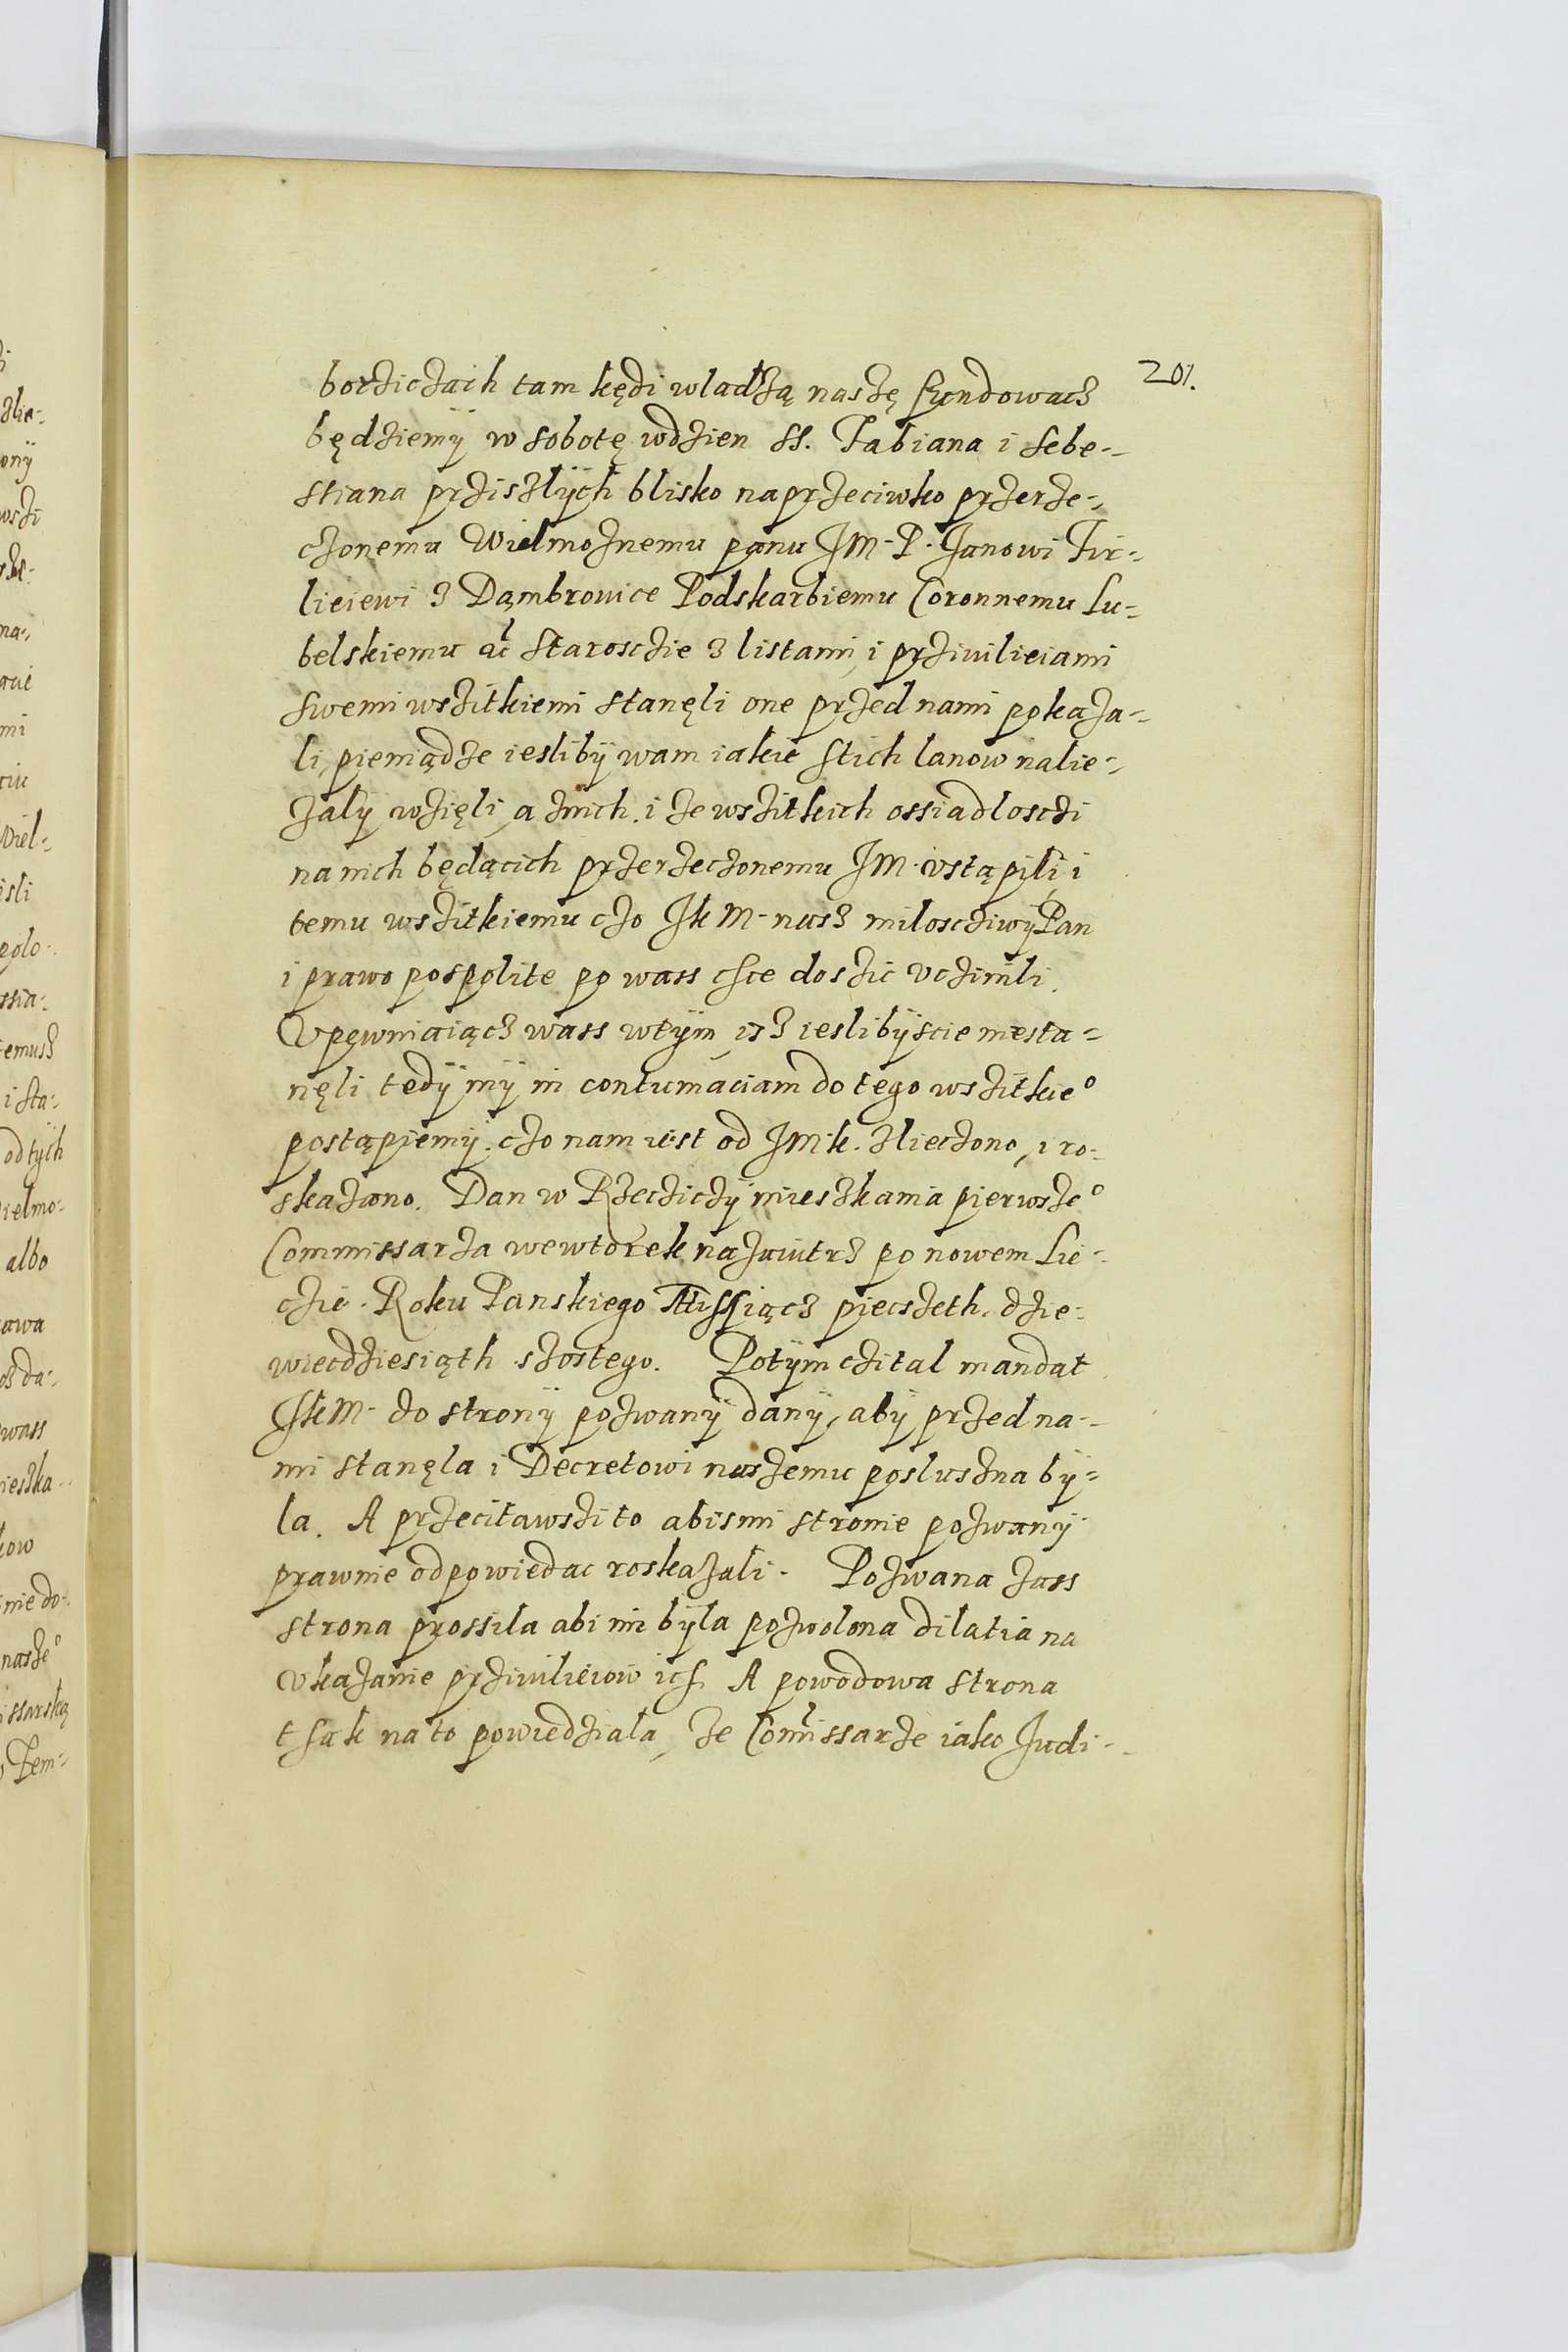 201.
borziczaih tam kędi wladzą naszę fundowacz
będziemÿ w sobotę wdzien SS. Fabiana i Sebe-
stiana prziszlÿch blisko naprzeciwko przerze-
czonemu Wielmoznemu panu JM. P. Janowi Fir-
lieiewi z Dąmbrowice Podskarbiemu Coronnemu Lu-
belskiemu ac Starosczie z listami, i prziuilieiami
swemi wszitkiemi stanęli one przed nami pokaza-
li, pieniądze ieslibÿ wam iakie stich lanow nalie-
zalÿ wzięli, a znich. i ze wszitkich ossiadlosczi
na nich będącich przerzeczonemu JM. vstąpili, i
temu wszitkiemu czo JkM. nasz milosciwÿ Pan
i prawo pospolite po wass chce doszic vczinili.
Vpewniaiącz wass wtÿm, isz ieslibÿscie niesta-
nęli tedÿ mÿ in contumaciam do tego wszitkieo
postąpiemÿ. czo nam iest od JMk. zlieczono, i ro-
skazano. Dan w Rzecziczÿ mieszkania pierwszeo
Commissarza wewtorek nazaiutrz po nowem Lie-
czie. Roku Panskiego Tissiącz piecszeth. dzie-
wiecdziesiąth szostego. Potÿm czital mandat
JkM. do stronÿ pozwanÿ danÿ, abÿ przed na-
mi stanęla i Decretowi naszemu posluszna bÿ-
la. A przecitawszi to abismi stronie pozwanÿ
prawnie odpowiedac roskazali. Pozwana zass
strona prossila abi im bÿla pozwolona dilatia na
vkazanie prziuilieiow ich. A powodowa strona
thak na to powiedziala, ze Comissarze iako Judi-